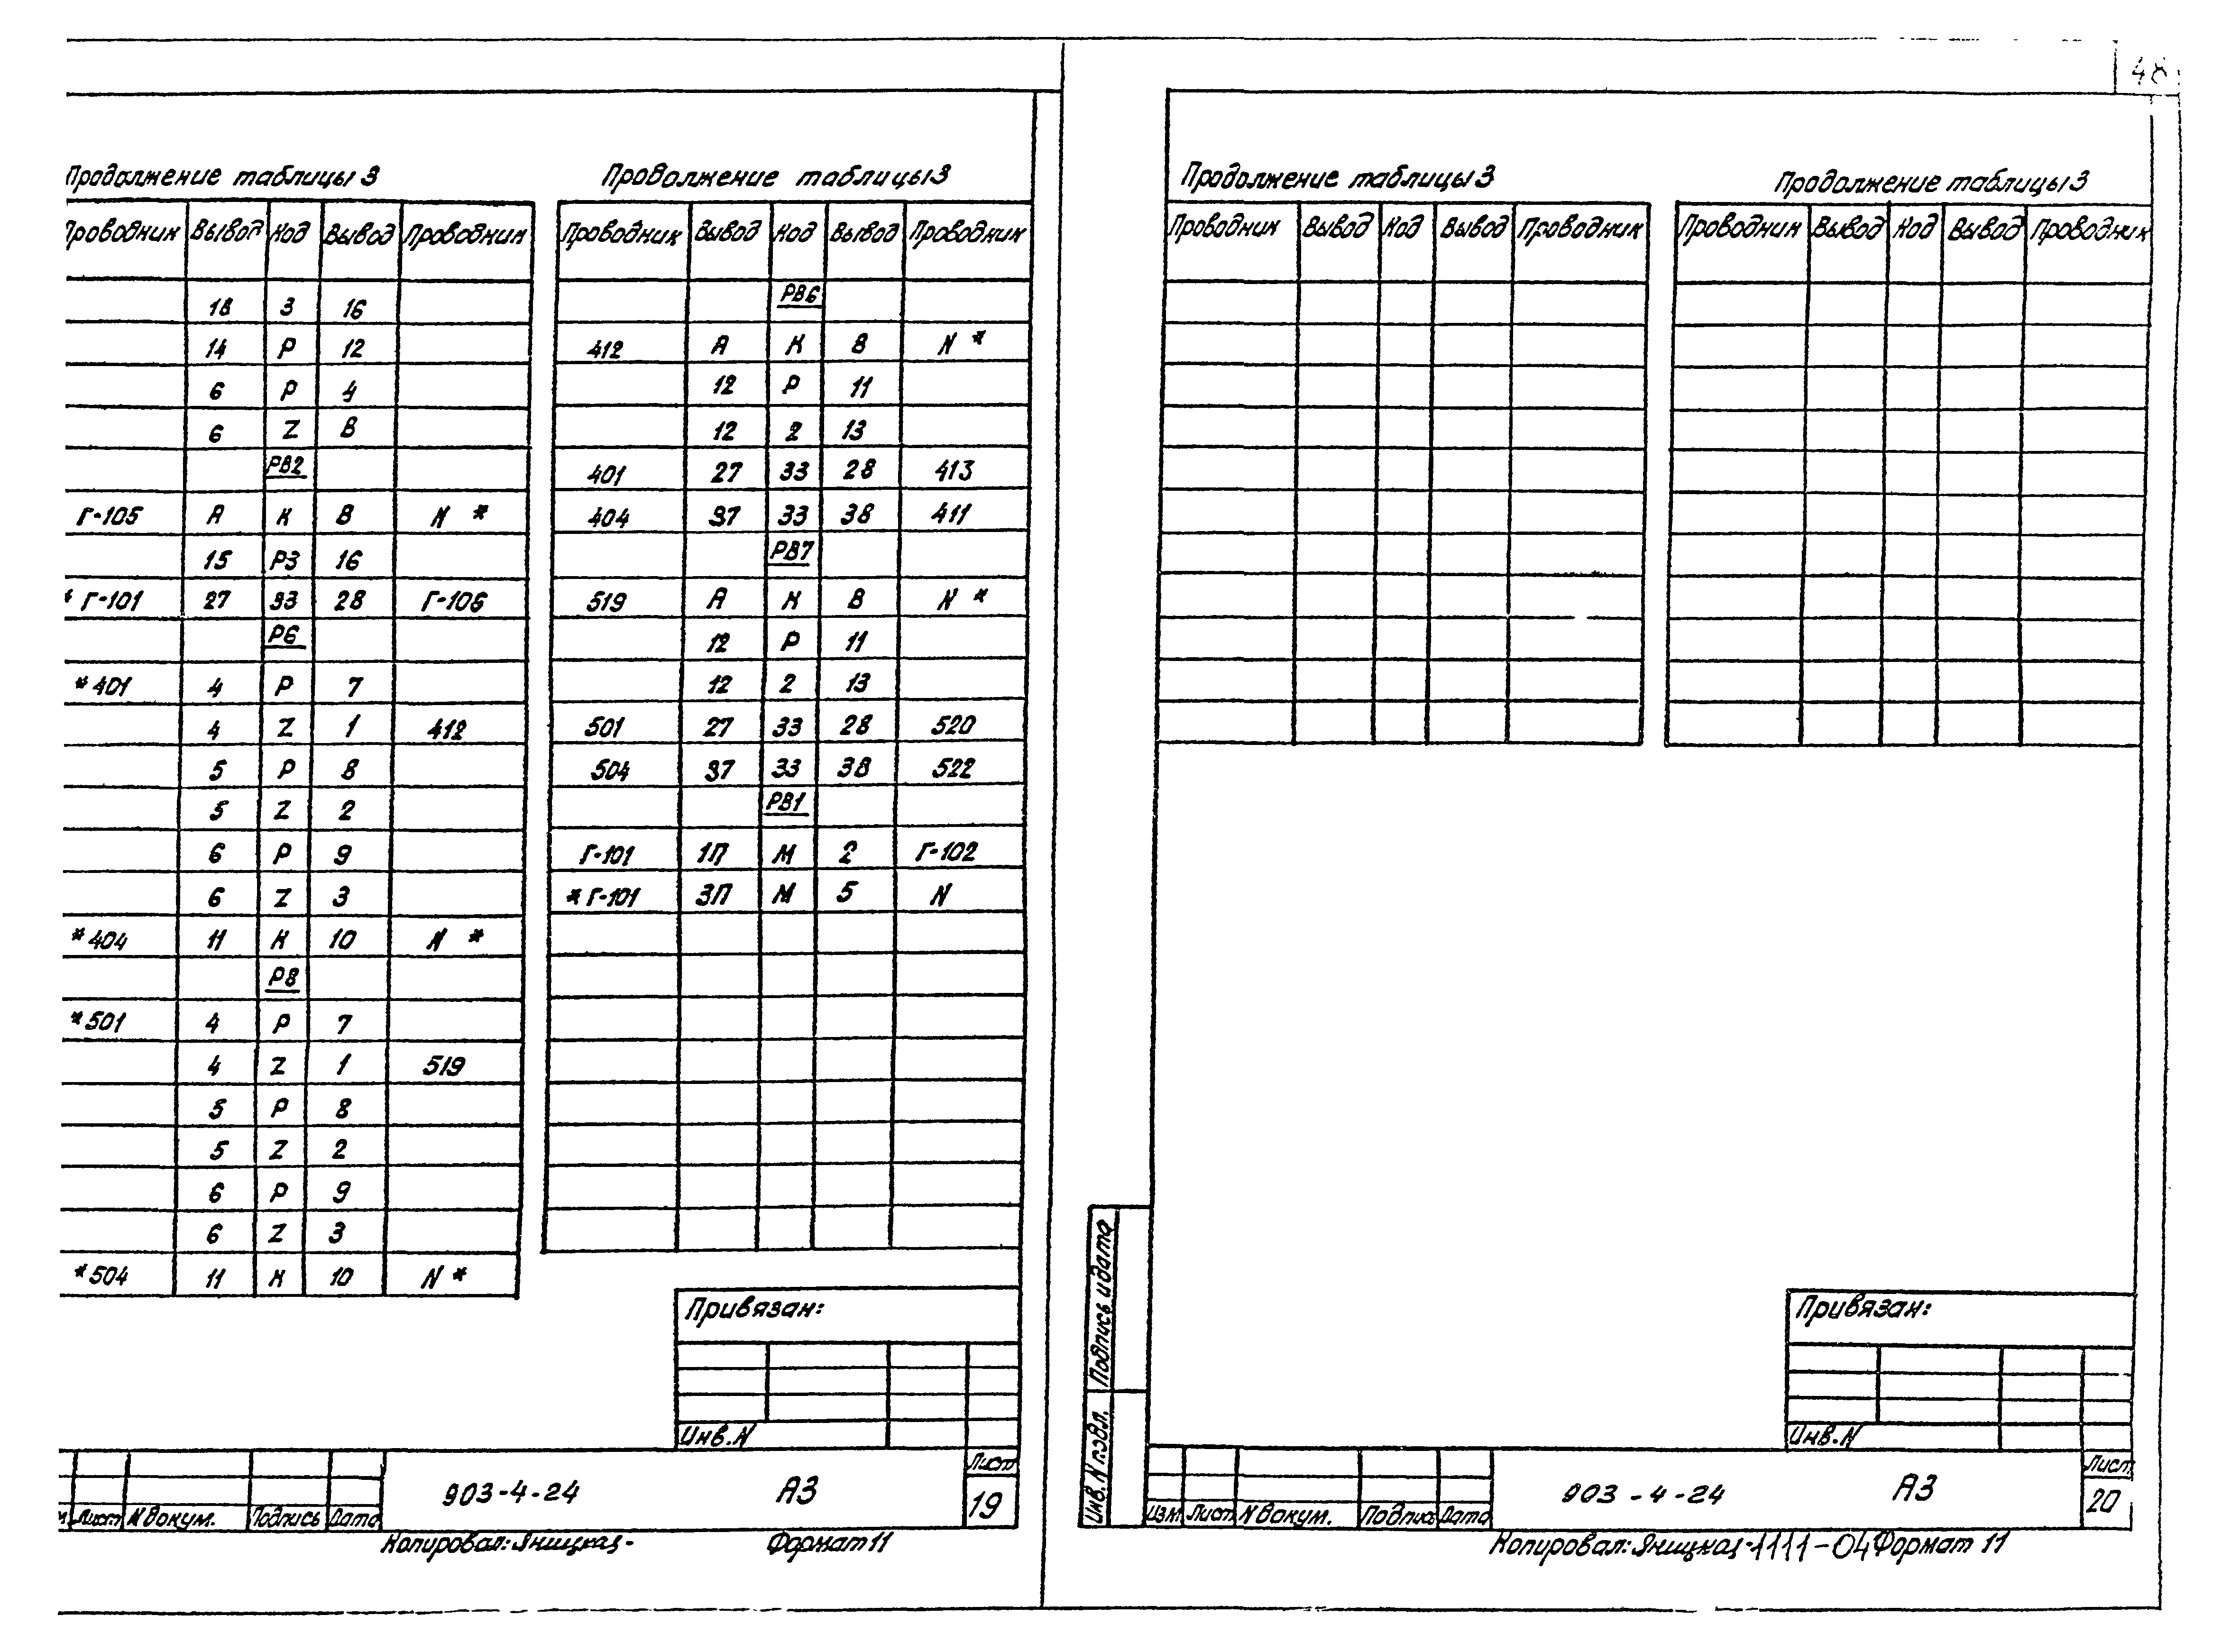 48
Продолжение таблицы 3
Проводник Вывод Код Вывод Проводник
18 3 16
14 Р 12
6 Р 4
6 Z В
РВ2
Г-105 А К В N *
15 РЗ 16
* Г-101 27 33 28 Г-106
Р6
*401 4 Р 7
4 Z 1 412
5 Р 8
5 Z 2
6 Р 9
6 Z 3
*404 11 К 10 N *
Р8
*501 4 Р 7
4 Z 1 519
5 Р 8
5 Z 2
6 Р 9
6 Z 3
*504 11 К 10 N *
Продолжение таблицы 3
Проводник Вывод Код Вывод Проводник
РВ6
412 А К В N *
12 Р 11
12 2 13
401 27 33 28 413
404 37 33 38 411
РВ7
519 А К В N *
12 Р 11
12 2 13
501 27 33 28 520
504 37 33 38 522
РВ1
Г-101 1П М 2 Г-102
* Г-101 3П М 5 N
Привязан:
Инв.N
903-4-24 А3
Лист
19
Лист N докум. Подпись Дата
Копировал: Яницкая- Формат 11
Продолжение таблицы 3
Проводник Вывод Код Вывод Проводник
Продолжение таблицы 3
Проводник Вывод Код Вывод Проводник
Подпись и дата
Инв. N подл.
Привязан:
Инв.N
903-4-24 А3
Лист
20
Изм Лист N докум. Подпись Дата
Копировал: Яницкая- 1111-04 Формат 11